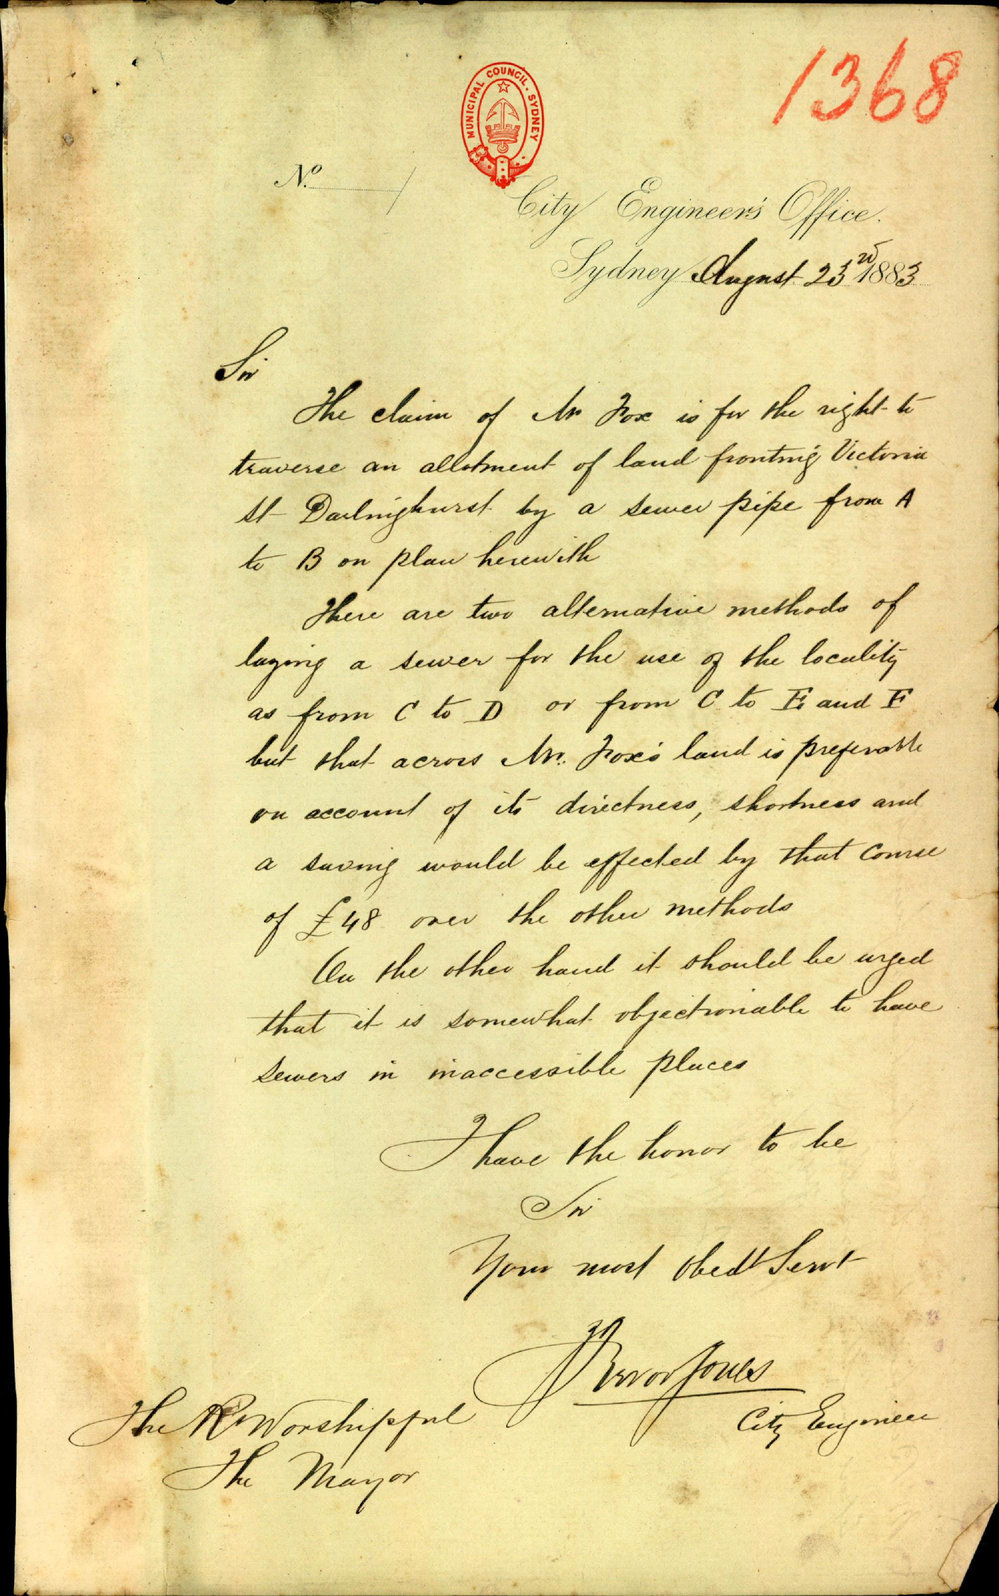 1368
MUNICIPAL COUNCIL. SYDNEY
No.
City Engineer's Office.
Sydney August 23rd 1883
Sir
The claim of Mr Fox is for the right to
traverse an allotment of land fronting Victoria
St Darlinghurst by a sewer pipe from A
to B on plan herewith
There are two alternative methods of
laying a sewer for the use of the locality
as from C to D or from C to E and F
but that across Mr. Fox's land is preferable
on account of its directness, shortness and
a saving would be effected by that course
of £48 over the other methods
On the other hand it should be urged
that it is somewhat objectionable to have
sewers in inaccessible places
I have the honor to be
Sir
Your most obedt Servt
Trevor Jones
City Engineer
The Rt Worshipful
The Mayor